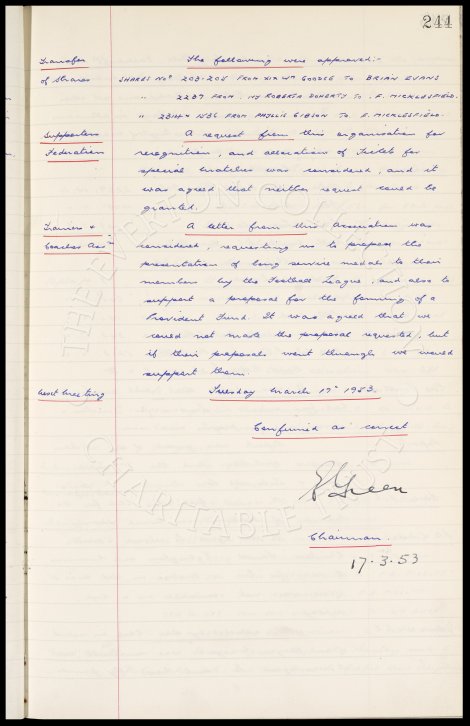 244
Transfer of Shares
The following were approved:-
SHARES Nos 203-205 FROM Wm GOODGE TO BRIAN EVANS
" 2237 FROM ROBERTA DOHERTY TO F. MICKLESFIELD.
" 23144 1536 FROM PHYLLIS GIBSON TO F. MICKLESFIELD.
Supporters Federation
A request from this organisation for
recognition, and allocation of Tickets for
special matches was considered, and it
was agreed that neither request could be
granted.
Trainers & Coaches Assn
A letter from this Association was
considered, requesting us to propose the
presentation of long service medals to their
members by the Football League, and also to
support a proposal for the forming of a
Provident Fund. It was agreed that we
could not make the proposal requested, but
if their proposals went through we would
support them.
Next Meeting
Tuesday March 17th 1953.
Confirmed as correct
E Green
Chairman.
17.3.53
THE EVERTON COLLECTION
CHARITABLE TRUST